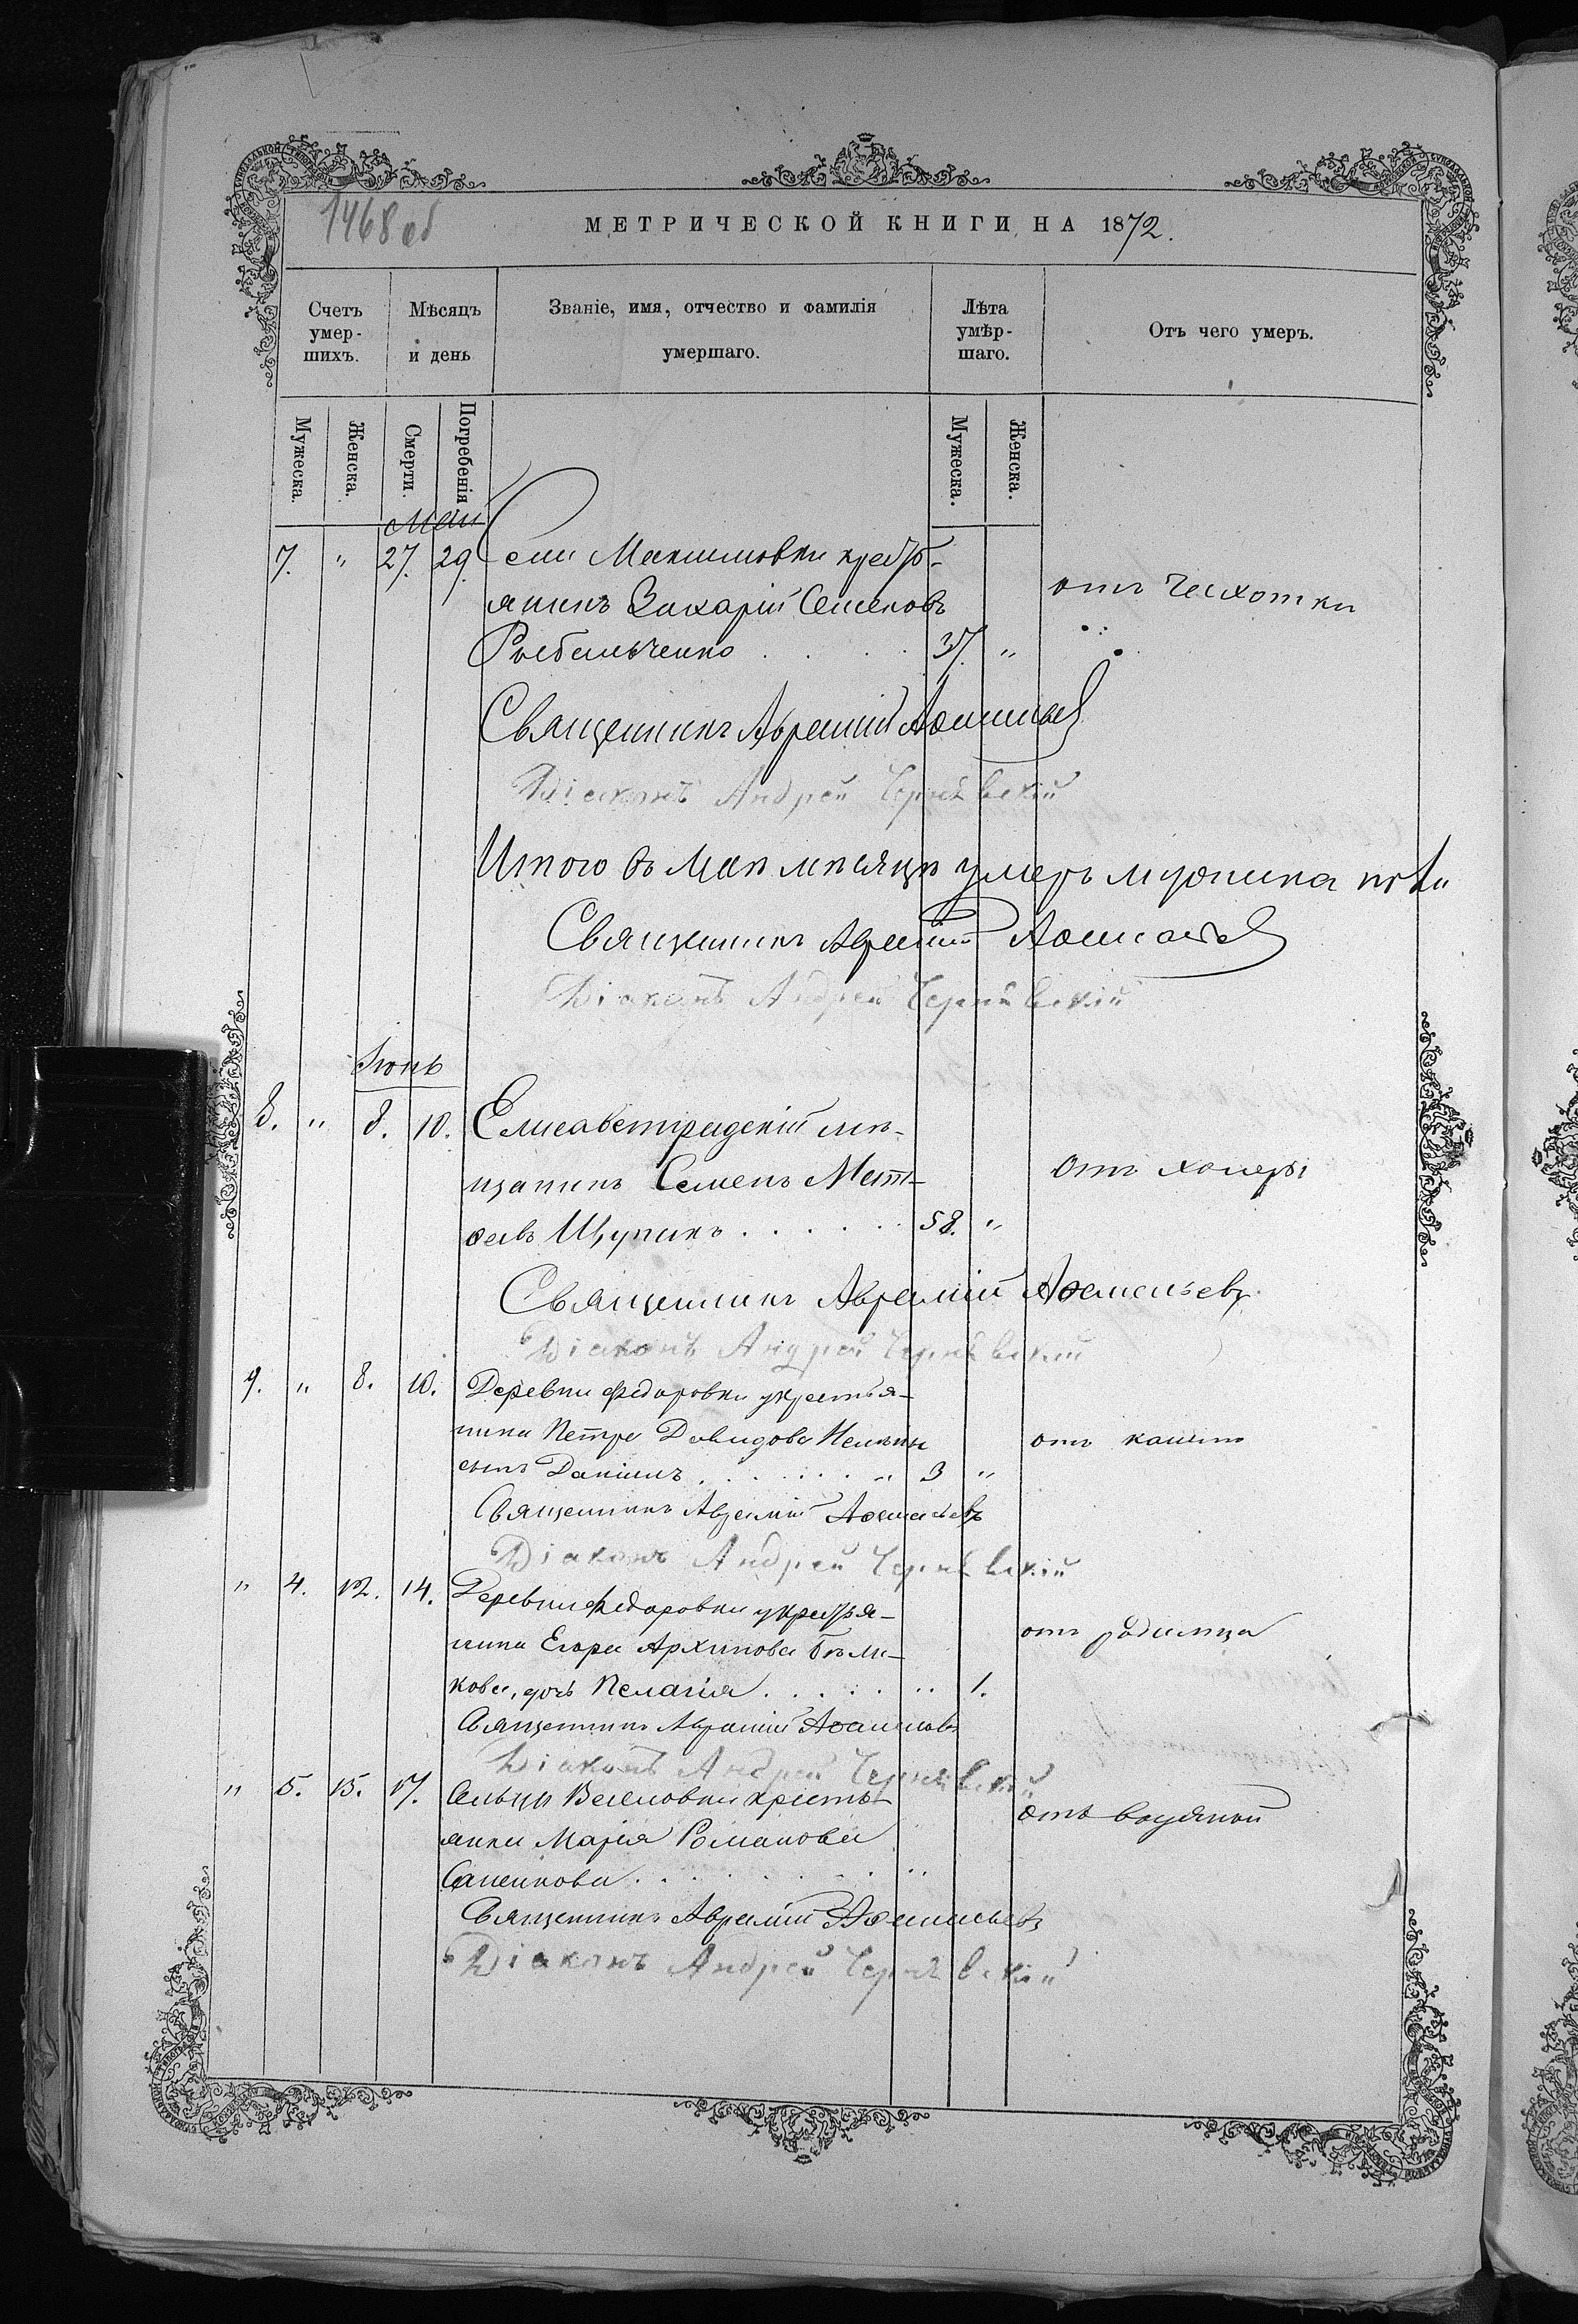 1468 об
МЕТРИЧЕСКОЙ КНИГИ НА 1872.
Счетъ умер-шихъ.
Мѣсяцъ и день
Званіе, имя, отчество и фамилія умершаго.
Лѣта умѣр-шаго.
Отъ чего умеръ.
Мужеска. Женска. Смерти. Погребенія Мужеска. Женска.
Маи
7. " 27. 29. Села Максимовки крестъ-
янинъ Захарій Семеновъ отъ чихотки
37. "
Священникъ Аврамій Аѳанасьев
Діаконъ Андрей Чернѣвскій
Итого въ Маѣ мѣсяцѣ умеръ мужеска
Священникъ Аврамій Аѳанасьев
Діаконъ Андрей Чернѣвскій
Іюнь
8. " 8. 10. Елисаветградскій мѣ-
щанинъ Семенъ Мат- отъ холеры
ѳеевъ Щупикъ . . . . . . 58. "
Священникъ Аврамій Аѳанасьевъ
Діаконъ Андрей Чернѣвскій
9. " 8. 10. Деревни Федоровки у крестья-
нина Петра Давидова отъ кашля
сынъ Даніилъ . . . . . . " 3 "
Священникъ Аврамій Аѳанасьевъ
Діаконъ Андрей Чернѣвскій
" 4. 12. 14. Деревни Федоровки у крестья-
нина Егора Архипова Бѣли- отъ родимца
кова, дочь Пелагія . . . . . " 1.
Священникъ Аврамій Аѳанасьевъ
Діаконъ Андрей Чернѣвскій
" 5. 15. 17. Сельца Веселовки кресть- отъ водяной
янка Марія Романова
. . . . . . . "
Священникъ Аврамій Аѳанасьевъ
Діаконъ Андрей Чернѣвскій